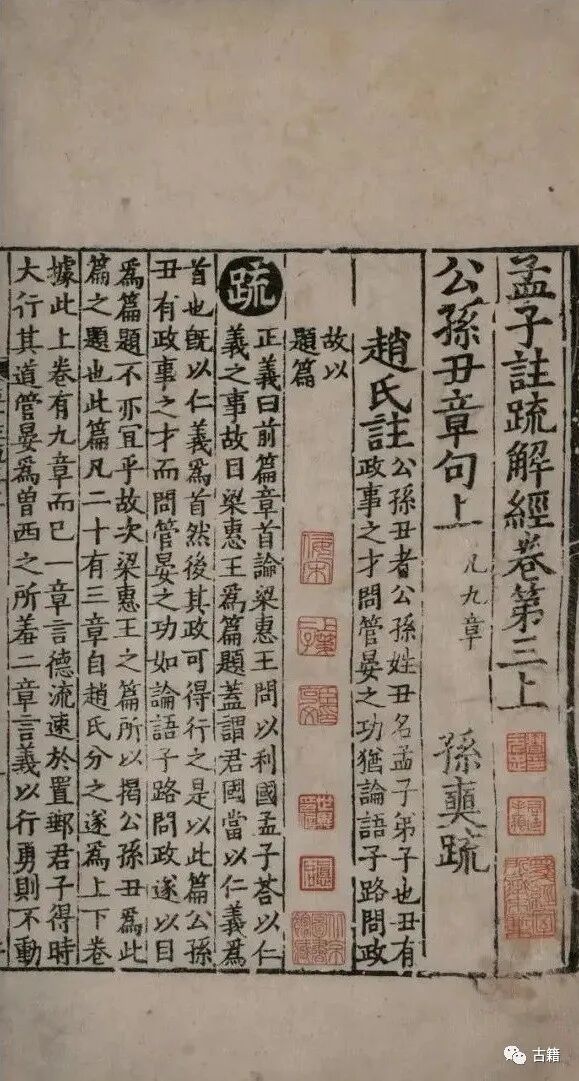 孟子註疏解經卷第三上
公孫丑章句上 凡九章 孫奭疏
趙氏註 公孫丑者公孫姓丑名孟子弟子也丑有
政事之才問管晏之功猶論語子路問政
故以
題篇
疏 正義曰前篇章首論梁惠王問以利國孟子荅以仁
義之事故曰梁惠王爲篇題蓋謂君國當以仁義爲
首也旣以仁義爲首然後其政可得行之是以此篇公孫
丑有政事之才而問管晏之功如論語子路問政遂以目
爲篇題不亦宜乎故次梁惠王之篇所以揭公孫丑爲此
篇之題也此篇凡二十有三章自趙氏分之遂爲上下卷
據此上卷有九章而已一章言德流速於置郵君子得時
大行其道管晏爲曾西之所羞二章言義以行勇則不動
古籍